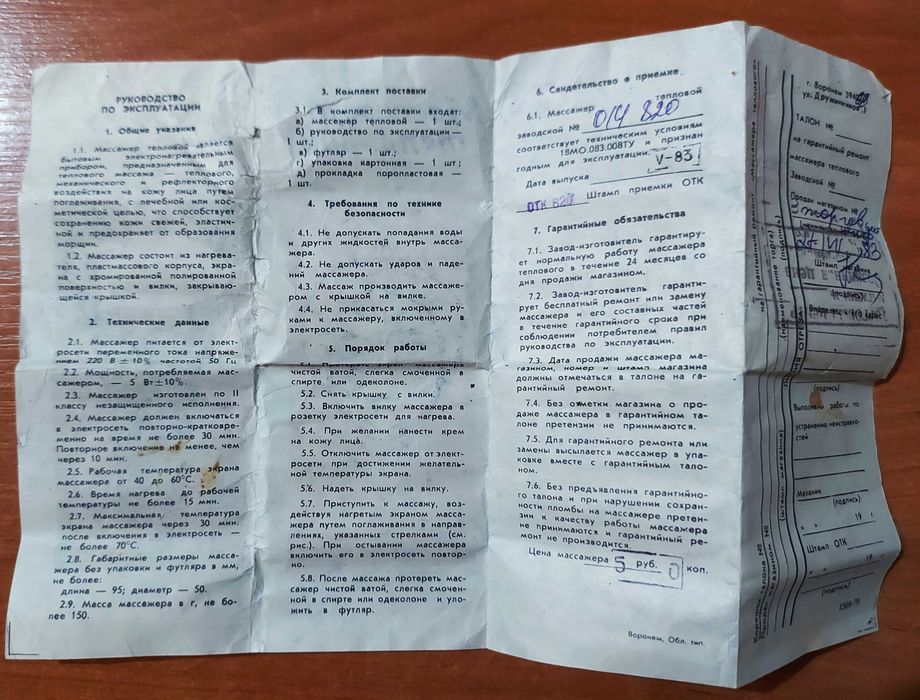 РУКОВОДСТВО
ПО ЭКСПЛУАТАЦИИ
1. Общие указания
1.1. Массажер тепловой является
бытовым электронагревательным
прибором, предназначенным для
теплового массажа — теплового,
механического и рефлекторного
воздействия на кожу лица путем
поглаживания, с лечебной или кос-
метической целью, что способствует
сохранению кожи свежей, эластич-
ной и предохраняет от образования
морщин.
1.2. Массажер состоит из нагрева-
теля, пластмассового корпуса, экра-
на с хромированной полированной
поверхностью и вилки, закрываю-
щейся крышкой.
2. Технические данные
2.1. Массажер питается от элект-
росети переменного тока напряже-
нием 220 В ±10% частотой 50 Гц.
2.2. Мощность, потребляемая мас-
сажером, — 5 Вт±10%.
2.3. Массажер изготовлен по II
классу незащищенного исполнения.
2.4. Массажер должен включаться
в электросеть повторно-кратковре-
менно на время не более 30 мин.
Повторное включение не менее, чем
через 10 мин.
2.5. Рабочая температура экрана
массажера от 40 до 60°С.
2.6. Время нагрева до рабочей
температуры не более 15 мин.
2.7. Максимальная температура
экрана массажера через 30 мин.
после включения в электросеть —
не более 70°С.
2.8. Габаритные размеры масса-
жера без упаковки и футляра в мм,
не более:
длина — 95; диаметр — 50.
2.9. Масса массажера в г, не бо-
лее 150.
3. Комплект поставки
3.1. В комплект поставки входят:
а) массажер тепловой — 1 шт.;
б) руководство по эксплуатации —
1 шт.;
в) футляр — 1 шт.;
г) упаковка картонная — 1 шт.;
д) прокладка поропластовая —
1 шт.
4. Требования по технике
безопасности
4.1. Не допускать попадания воды
и других жидкостей внутрь масса-
жера.
4.2. Не допускать ударов и паде-
ний массажера.
4.3. Массаж производить массаже-
ром с крышкой на вилке.
4.4. Не прикасаться мокрыми ру-
ками к массажеру, включенному в
электросеть.
5. Порядок работы
5.1. Протереть экран массажера
чистой ватой, слегка смоченной в
спирте или одеколоне.
5.2. Снять крышку с вилки.
5.3. Включить вилку массажера в
розетку электросети для нагрева.
5.4. При желании нанести крем
на кожу лица.
5.5. Отключить массажер от элект-
росети при достижении желатель-
ной температуры экрана.
5.6. Надеть крышку на вилку.
5.7. Приступить к массажу, воз-
действуя нагретым экраном масса-
жера путем поглаживания в направ-
лениях, указанных стрелками (см.
рис.). При остывании массажера
включить его в электросеть повтор-
но.
5.8. После массажа протереть мас-
сажер чистой ватой, слегка смочен-
ной в спирте или одеколоне и уло-
жить в футляр.
6. Свидетельство о приемке
6.1. Массажер тепловой
заводской № 014 820
соответствует техническим условиям
18МО.083.008ТУ и признан
годным для эксплуатации.
Дата выпуска V-83
ОТК 820 Штамп приемки ОТК
7. Гарантийные обязательства
7.1. Завод-изготовитель гарантиру-
ет нормальную работу массажера
теплового в течение 24 месяцев со
дня продажи магазином.
7.2. Завод-изготовитель гаранти-
рует бесплатный ремонт или замену
массажера и его составных частей
в течение гарантийного срока при
соблюдении потребителем правил
руководства по эксплуатации.
7.3. Дата продажи массажера ма-
газином, номер и штамп магазина
должны отмечаться в талоне на га-
рантийный ремонт.
7.4. Без отметки магазина о про-
даже массажера в гарантийном та-
лоне претензии не принимаются.
7.5. Для гарантийного ремонта или
замены высылается массажер в упа-
ковке вместе с гарантийным тало-
ном.
7.6. Без предъявления гарантийно-
го талона и при нарушении сохран-
ности пломбы на массажере претен-
зии к качеству работы массажера
не принимаются и гарантийный ре-
монт не производится.
Цена массажера 5 руб. 0 коп.
Воронеж, Обл. тип.
г. Воронеж
ул. Дружинников,
ТАЛОН №
на гарантийный ремонт
массажера теплового
Заводской №
Продан магазином №
Штамп
Владелец
(подпись)
Выполнены работы по
устранению неисправно-
стей
Механик
(подпись)
19 г.
Штамп ОТК
(подпись)